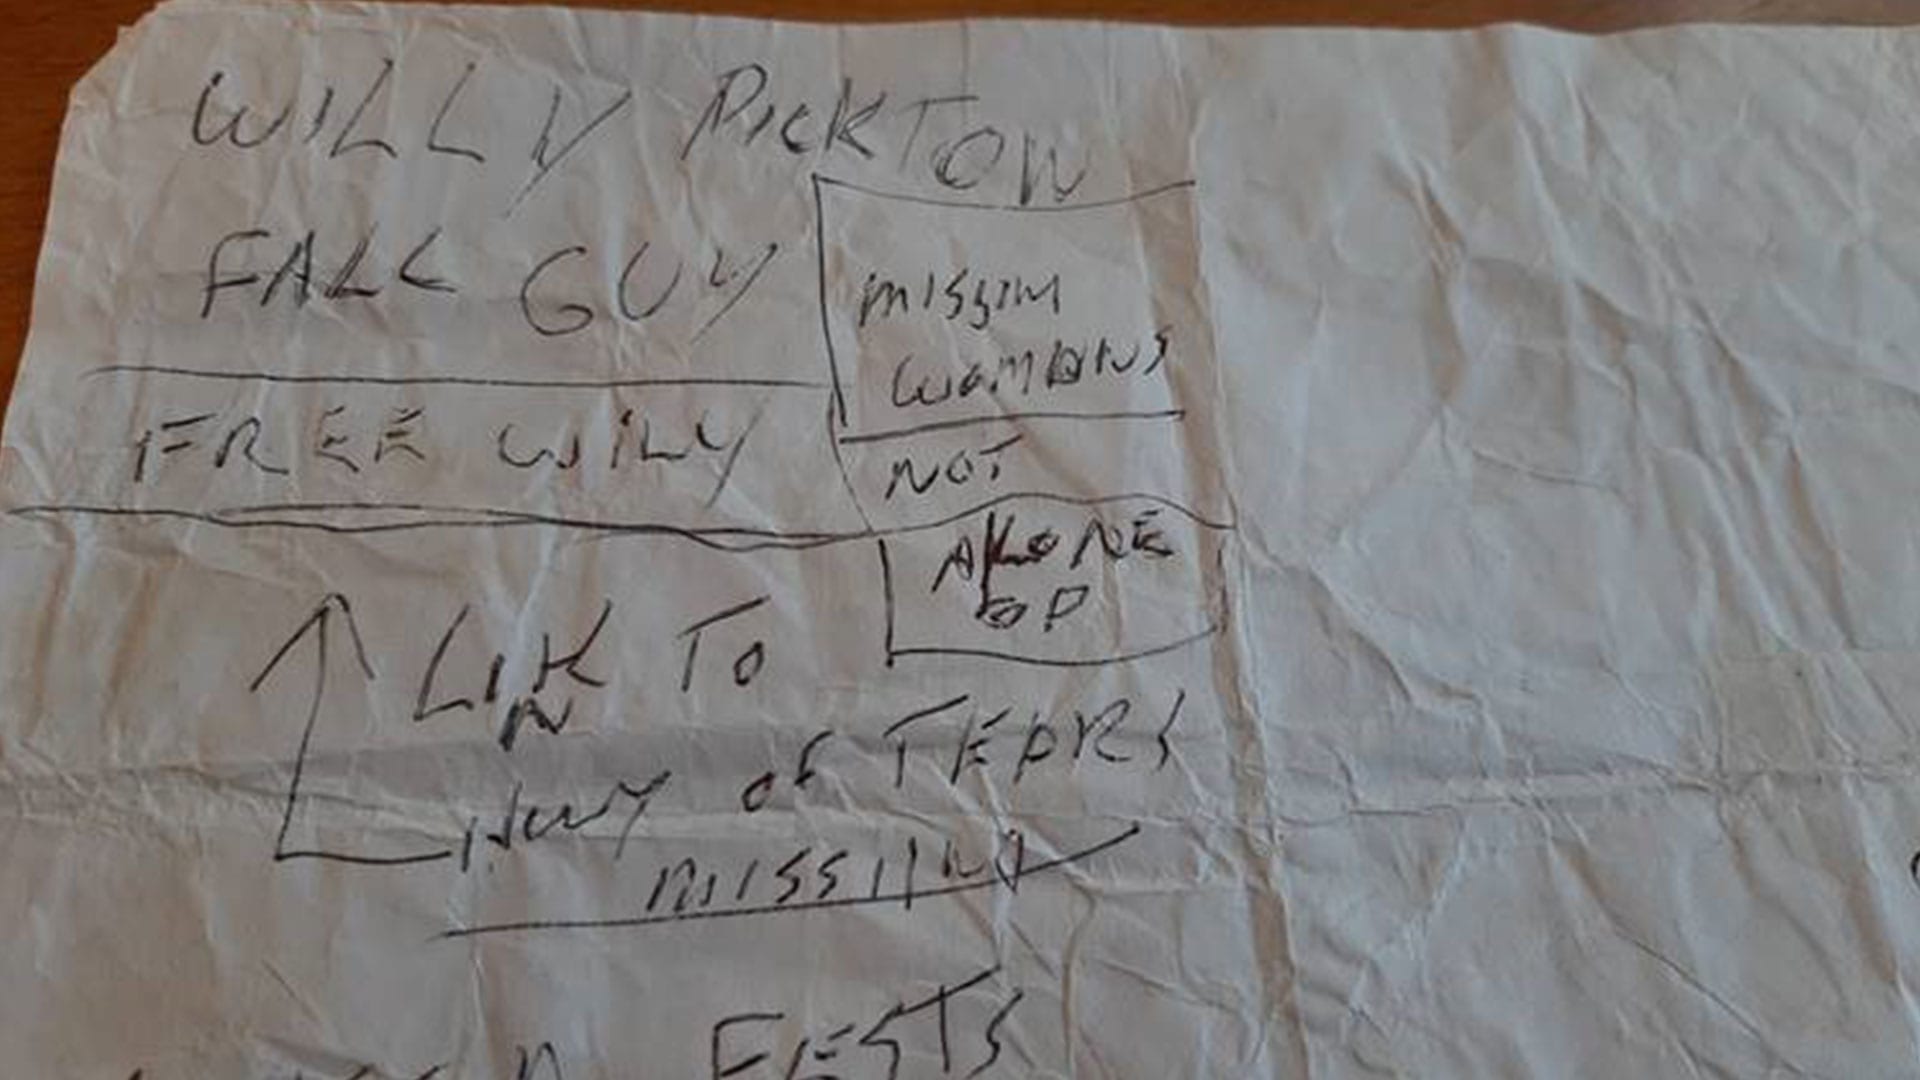 WILLY PICKTON
FALL GUY
FREE WILY
MISSIM
WOMANS
NOT
ALONE
OP
LINK TO
HWY OF TEARS
MISSING
FESTS